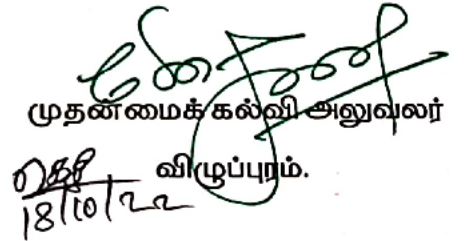 முதன்மைக் கல்வி அலுவலர்
விழுப்புரம்.
18/10/22